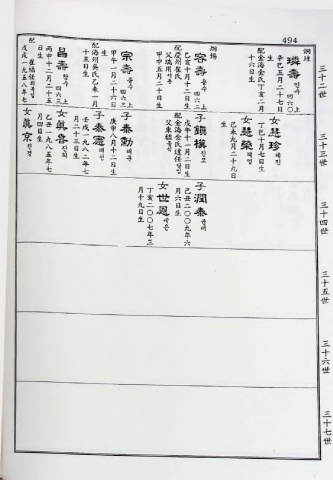 494
三十二世
三十三世
三十四世
三十五世
三十六世
三十七世
璘壽 인수 四六○上
辛巳五月二十七日生
配金海金氏丁亥二月
十六日生
女慧珍 혜진
丁巳十月七日生
女慧榮 혜영
己未九月二十九日
生
容壽 용수 四六二上
乙亥十月十二日生
配慶州崔氏
甲申五月二十日生
子鎭模 진모
戊午十一月二日生
配金海金氏
子潤泰 윤태
己丑二○○九年六
月六日生
女世恩 세은
丁亥二○○七年三
月十九日生
宗壽 종수 四六二上
甲午一月二十六日
生
配海州吳氏乙未一月
十五日生
子泰勳 태훈
庚申八月十二日生
子泰憲 태헌
壬戌一九八二年七
月二十三日生
昌壽 창수 四六三上
丙申十二月二十五
日生
配
戊戌一九五八年七
女眞喜 진희
乙丑一九八五年七
月四日生
女眞京 진경